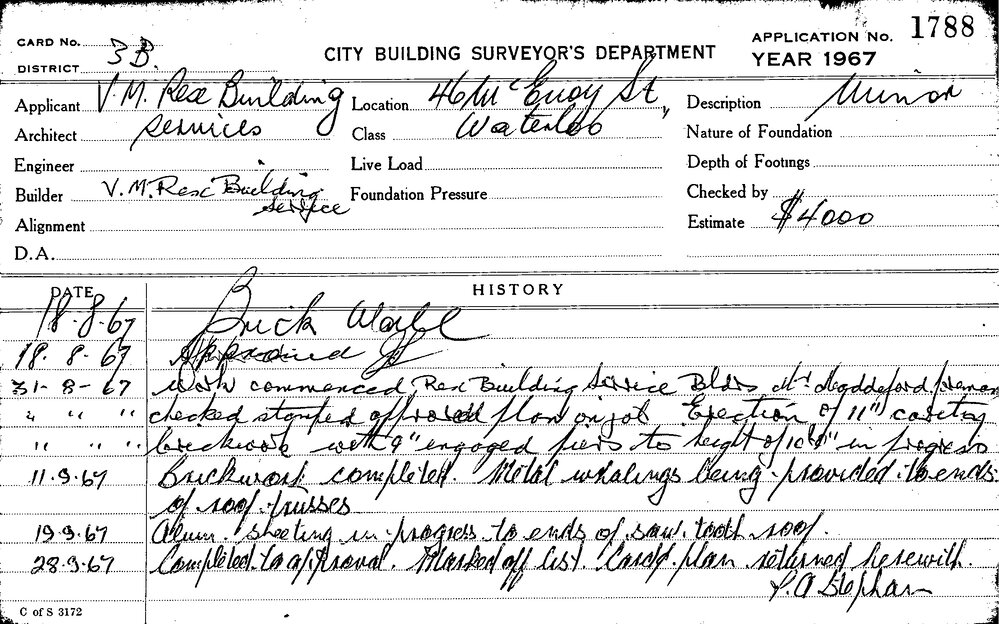 CARD No.
DISTRICT 3B.
CITY BUILDING SURVEYOR'S DEPARTMENT
APPLICATION No. 1788
YEAR 1967
Applicant V. M. Rex Building Location 46 McEvoy St, Description Minor
Architect Services Class Waterloo Nature of Foundation
Engineer Live Load Depth of Footings
Builder V. M. Rex Building Service Foundation Pressure Checked by
Alignment Estimate $4000
D.A.
DATE HISTORY
18.8.67 Brick Wall
18.8-67 Approved
31-8-67 Work commenced, Rex Building Service Bldrs Mr foreman
" " " checked stamped approved plan on job Erection of 11" cavity
" " " brickwork with 9" engaged piers to height of in progress
11.9.67 Brickwork completed. Metal whalings being provided to ends
of roof trusses
19.9.67 Alum. sheeting in progress to ends of saw tooth roof.
28.9.67 Completed to approval. Marked off list. Card & plan returned herewith.
P. A Stephan
C of S 3172